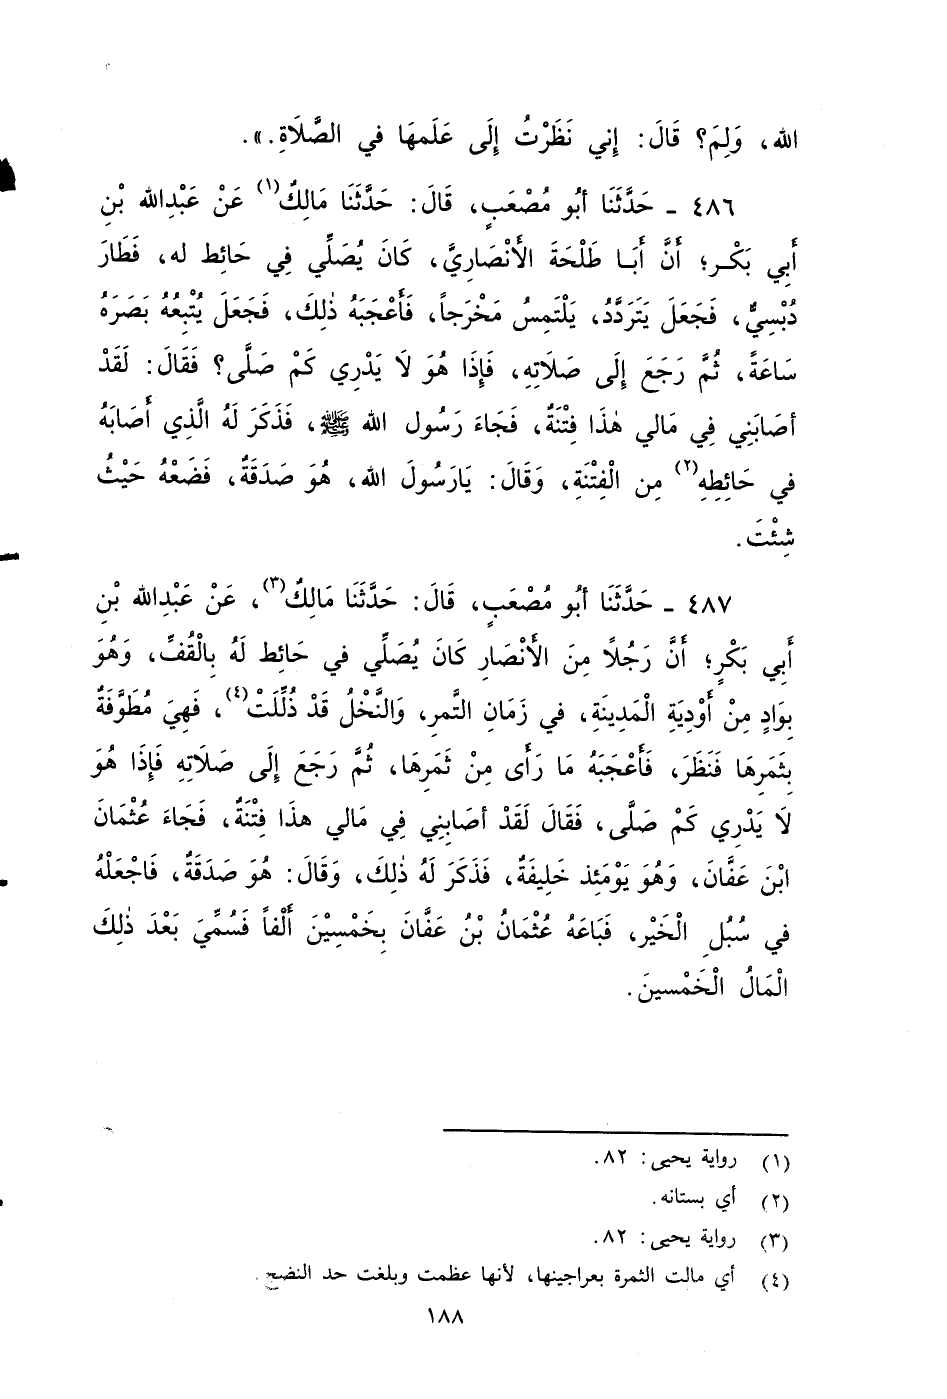 الله، وَلِمَ؟ قَالَ: إِني نَظَرْتُ إِلَى عَلَمهَا في الصَّلَاةِ.».
٤٨٦ ـ حَدَّثَنَا أبُو مُصْعَبٍ، قَالَ: حَدَّثَنَا مَالِكٌ(١) عَنْ عَبْدِالله بْنِ
أَبِي بَكْرٍ؛ أَنَّ أَبَا طَلْحَةَ الأَنْصَارِيَّ، كَانَ يُصَلِّي فِي حَائِط له، فَطَارَ
دُبْسِيٌّ، فَجَعَلَ يَتَرَدَّدُ، يَلْتَمِسُ مَخْرَجاً، فَأَعْجَبَهُ ذٰلِكَ، فَجَعَلَ يُتْبِعُهُ بَصَرَهُ
سَاعَةً، ثُمَّ رَجَعَ إِلَى صَلَاتِهِ، فَإِذَا هُوَ لَا يَدْرِي كَمْ صَلَّى؟ فَقَالَ: لَقَدْ
أصَابَنِي فِي مَالي هٰذَا فِتْنَةٌ، فَجَاءَ رَسُول الله ﷺ، فَذَكَرَ لَهُ الَّذِي أَصَابَهُ
في حَائِطِهِ(٢) مِن الْفِتْنَةِ، وَقَالَ: يَارَسُولَ الله، هُوَ صَدَقَةٌ، فَضَعْهُ حَيْثُ
شِئْتَ.
٤٨٧ ـ حَدَّثَنَا أبُو مُصْعَبٍ، قَالَ: حَدَّثَنَا مَالِكٌ(٣)، عَنْ عَبْدِالله بْنِ
أَبِي بَكْرٍ؛ أَنَّ رَجُلًا مِنَ الأَنْصَارِ كَانَ يُصَلِّي في حَائِط لَهُ بِالْقُفِّ، وَهُوَ
بِوَادٍ مِنْ أَوْدِيَةِ الْمَدِينَةِ، في زَمَانِ التَّمرِ، وَالنَّخْلُ قَدْ ذُلِّلَتْ(٤)، فَهِيَ مُطَوَّفَةٌ
بِثَمَرِهَا فَنَظَرَ، فَأَعْجَبَهُ مَا رَأَى مِنْ ثَمَرِهَا، ثُمَّ رَجَعَ إِلَى صَلَاتِهِ فَإِذَا هُوَ
لَا يَدْرِي كَمْ صَلَّى، فَقَالَ لَقَدْ أصَابِنِي فِي مَالي هذَا فِتْنَةٌ، فَجَاءَ عُثْمَانَ
ابْنَ عَفَّانَ، وَهُوَ يَوْمَئِذ خَلِيفَةٌ، فَذَكَرَ لَهُ ذٰلِكَ، وَقَالَ: هُوَ صَدَقَةٌ، فَاجْعَلْهُ
في سُبُلِ الْخَيْرِ، فَبَاعَهُ عُثْمَانُ بْنُ عَفَّانَ بِخَمْسِيْنَ أَلْفاً فَسُمِّيَ بَعْدَ ذٰلِكَ
الْمَالُ الْخَمْسينَ.
(١) رواية يحيى: ٨٢.
(٢) أي بستانه.
(٣) رواية يحيى: ٨٢.
(٤) أي مالت الثمرة بعراجينها، لأنها عظمت وبلغت حد النضج.
١٨٨